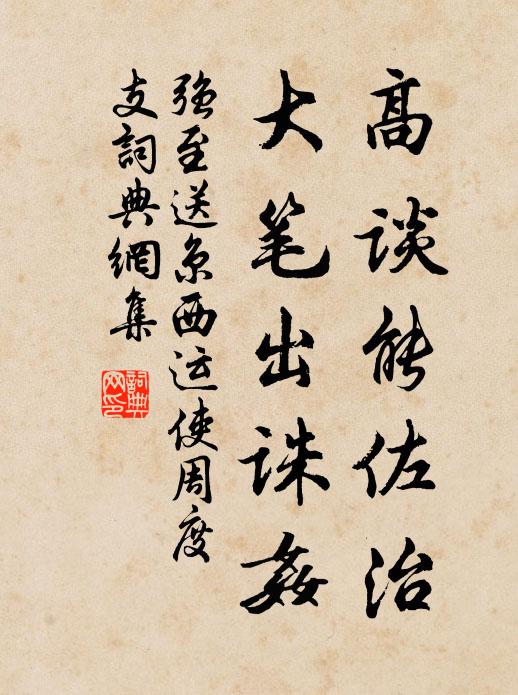 高谈能佐治
大笔出诛姦
强至送京西运使周度
支詞典網集
詞典
网印